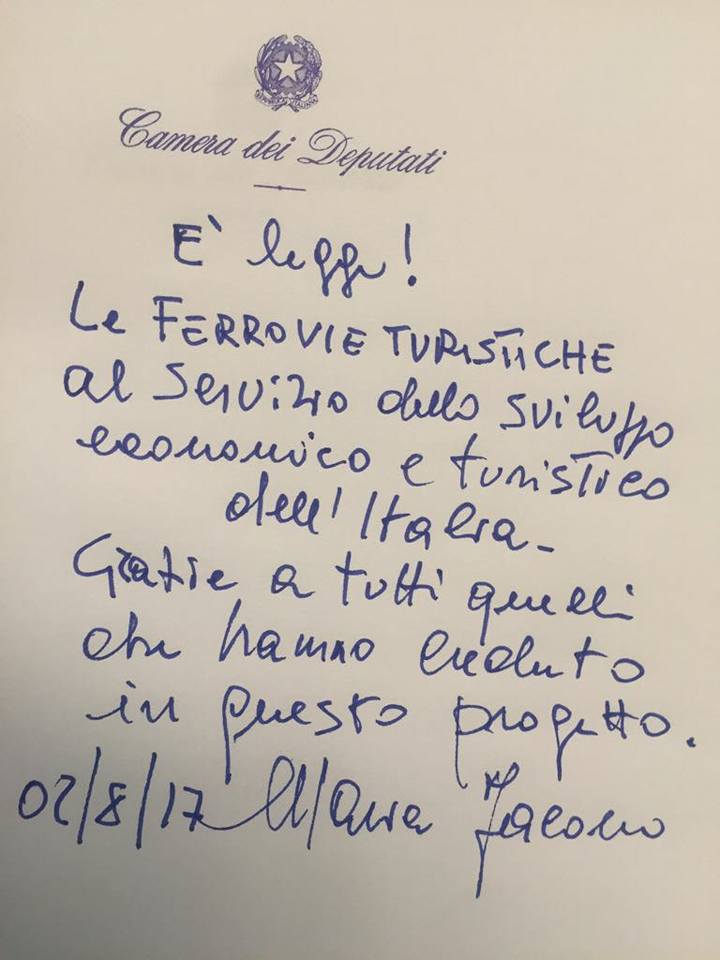 Camera dei Deputati
E` legge!
Le FERROVIE TURISTICHE
al servizio dello sviluppo
economico e turistico
dell'Italia-
Grazie a tutti quelli
che hanno creduto
in questo progetto.
02/8/17 Maria Iacono